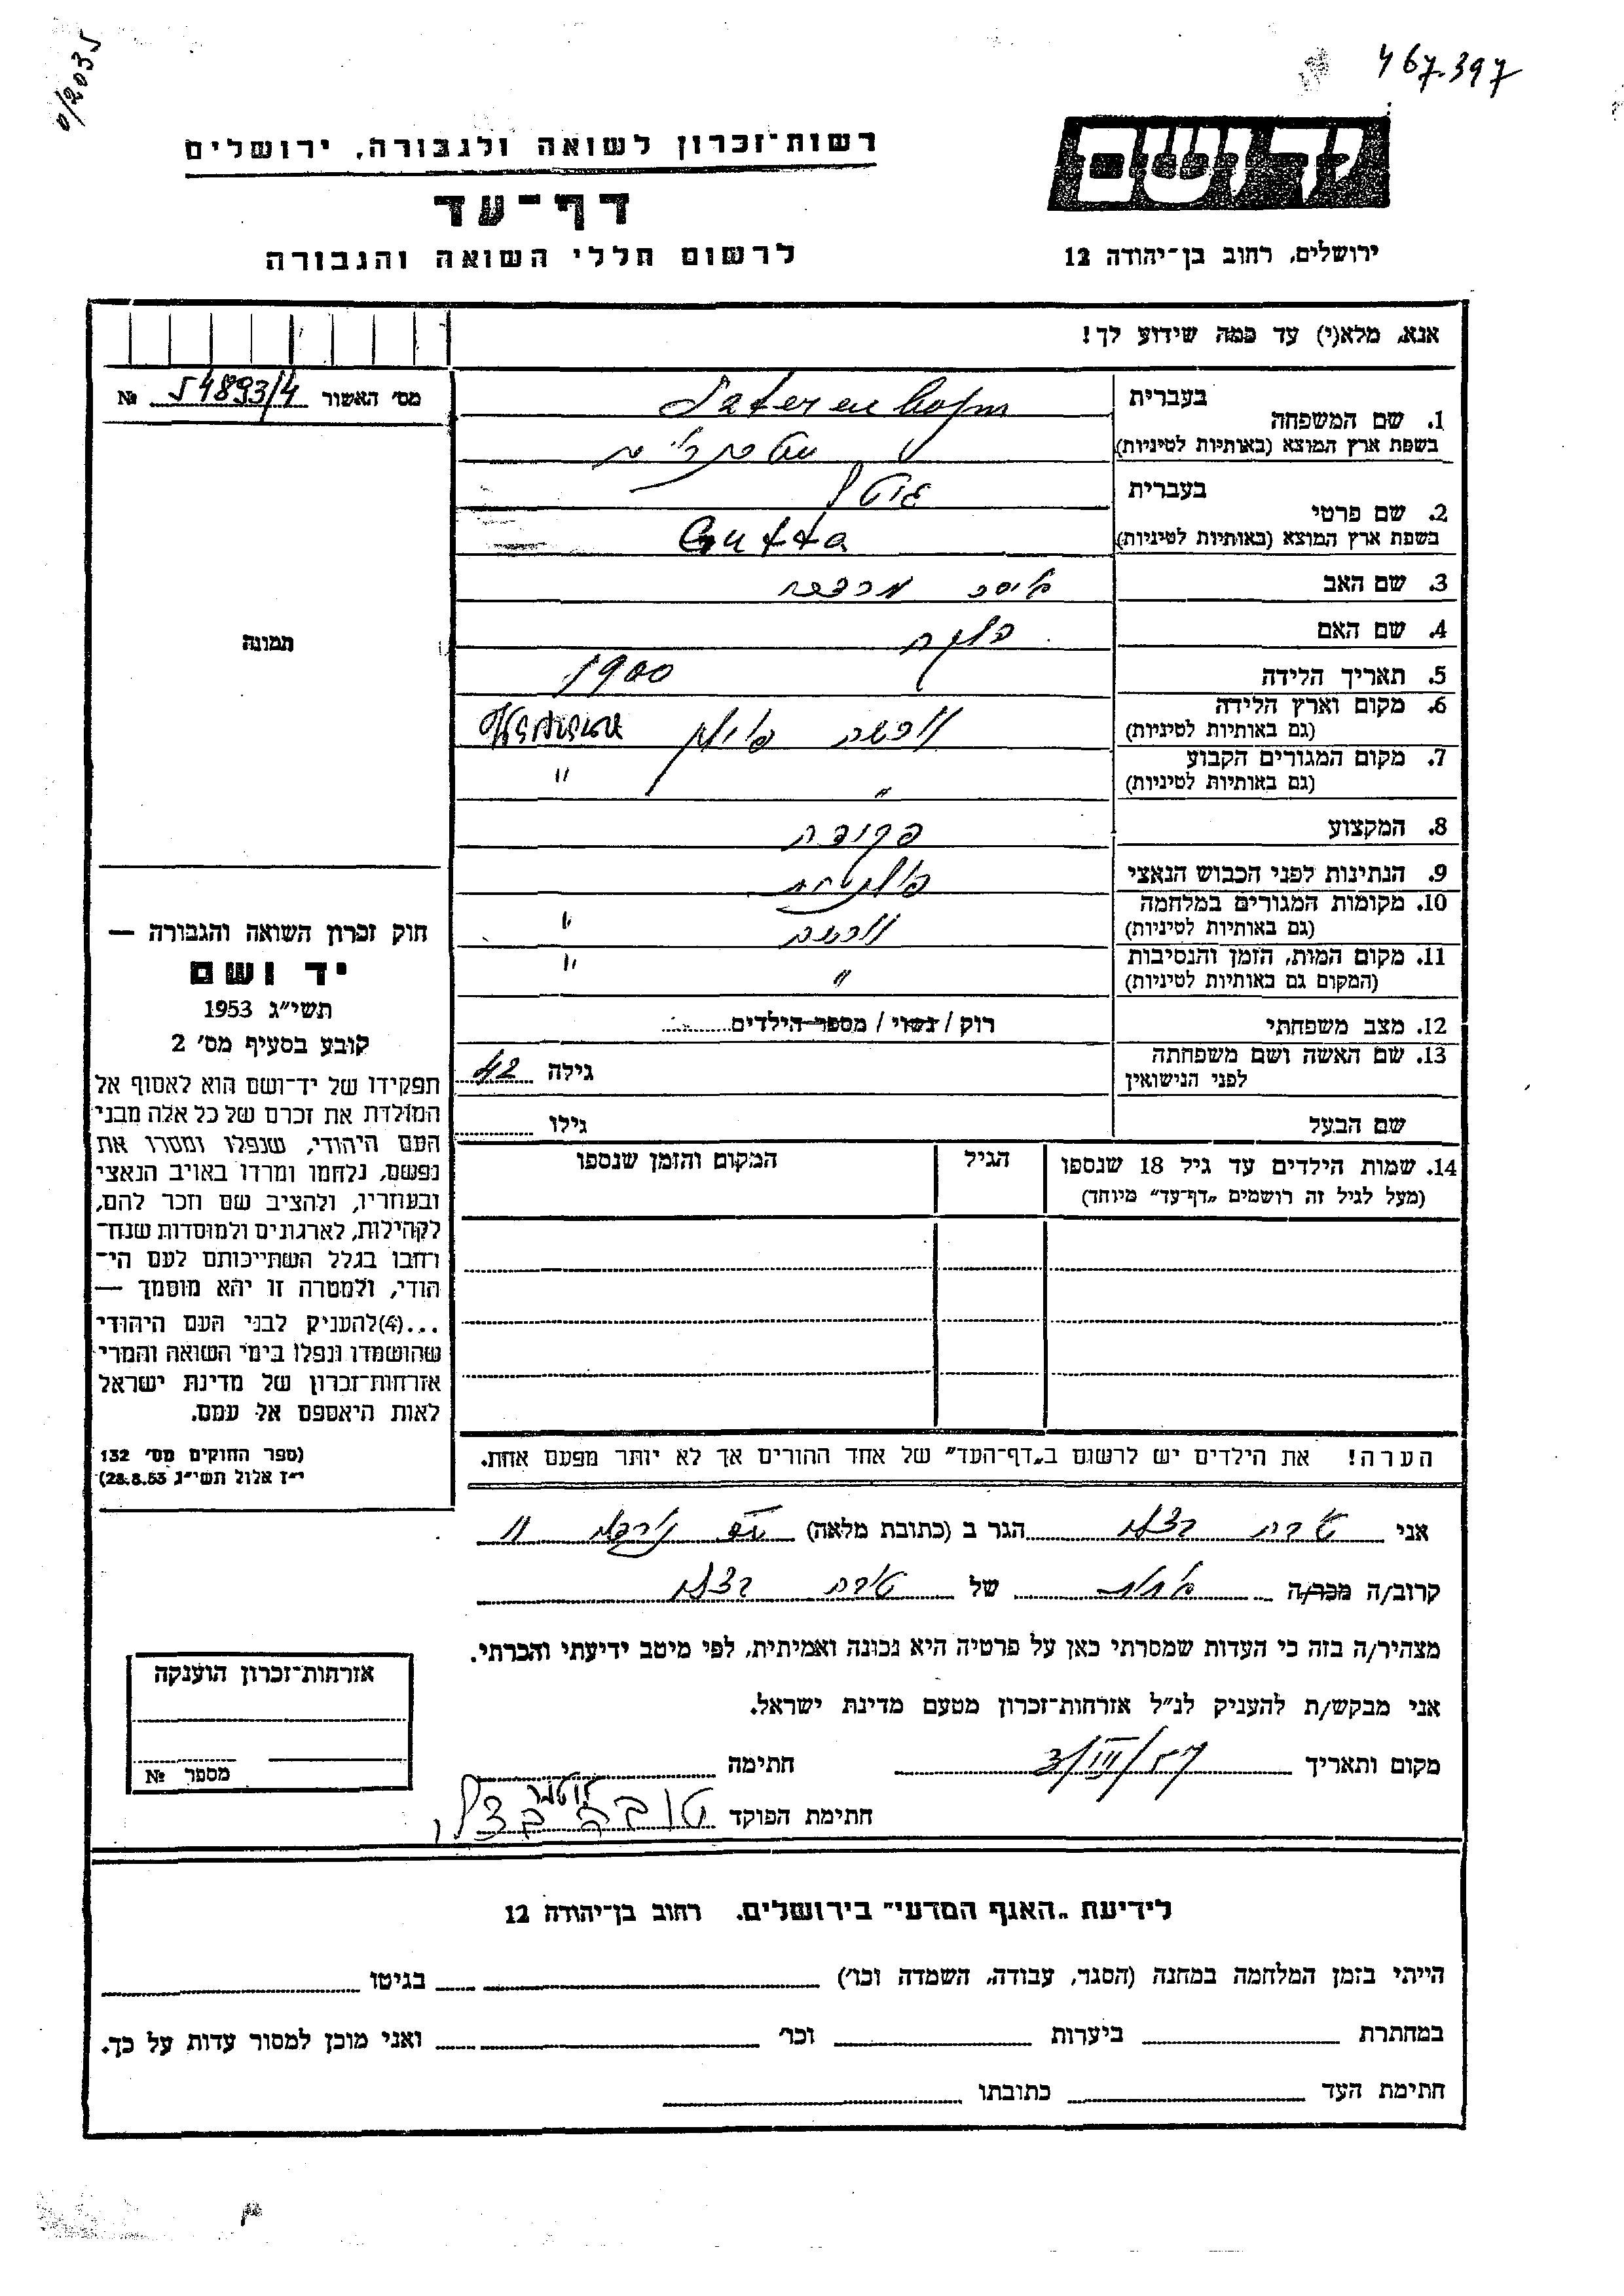 0/2035
467.397
יד ושם
רשות־זכרון לשואה ולגבורה, ירושלים
דף־עד
לרשום חללי השואה והגבורה
ירושלים, רחוב בן־יהודה 12
אנא, מלא(י) עד כמה שידוע לך!
מס׳ האשור 54893/4 №
בעברית
1. שם המשפחה
בשפת ארץ המוצא (באותיות לטיניות)
בעברית
2. שם פרטי
בשפת ארץ המוצא (באותיות לטיניות) Gutta
3. שם האב
4. שם האם
5. תאריך הלידה 1900
6. מקום וארץ הלידה
(גם באותיות לטיניות)
7. מקום המגורים הקבוע
(גם באותיות לטיניות) " "
8. המקצוע פקידה
9. הנתינות לפני הכבוש הנאצי
10. מקומות המגורים במלחמה
(גם באותיות לטיניות) "
11. מקום המות, הזמן והנסיבות
(המקום גם באותיות לטיניות) " "
12. מצב משפחתי רוק / נשוי / מספר הילדים
13. שם האשה ושם משפחתה
לפני הנישואין גילה 42
שם הבעל גילו
14. שמות הילדים עד גיל 18 שנספו
(מעל לגיל זה רושמים „דף־עד״ מיוחד)
הגיל
המקום והזמן שנספו
תמונה
חוק זכרון השואה והגבורה —
יד ושם
תשי״ג 1953
קובע בסעיף מס׳ 2
תפקידו של יד־ושם הוא לאסוף אל
המולדת את זכרם של כל אלה מבני
העם היהודי, שנפלו ומסרו את
נפשם, נלחמו ומרדו באויב הנאצי
ובעוזריו, ולהציב שם וזכר להם,
לקהילות, לארגונים ולמוסדות שנח־
רחבו בגלל השתייכותם לעם הי־
הודי, ולמטרה זו יהא מוסמך —
...(4)להעניק לבני העם היהודי
שהושמדו ונפלו בימי השואה והמרי
אזרחות־זכרון של מדינת ישראל
לאות היאספם אל עמם.
(ספר החוקים מס׳ 132
י״ז אלול תשי״ג 28.8.53)
הערה! את הילדים יש לרשום ב„דף־העד״ של אחד ההורים אך לא יותר מפעם אחת.
אני טובה הגר ב (כתובת מלאה) 11
קרוב/ה מכר/ה של טובה
מצהיר/ה בזה כי העדות שמסרתי כאן על פרטיה היא נכונה ואמיתית, לפי מיטב ידיעתי והכרתי.
אני מבקש/ת להעניק לנ״ל אזרחות־זכרון מטעם מדינת ישראל.
מקום ותאריך 3/III/57 חתימה
חתימת הפוקד
אזרחות־זכרון הוענקה
מספר №
לידיעת „האגף המדעי״ בירושלים. רחוב בן־יהודה 12
הייתי בזמן המלחמה במחנה (הסגר, עבודה, השמדה וכו׳) בגיטו
במחתרת ביערות וכו׳ ואני מוכן למסור עדות על כך.
חתימת העד כתובתו